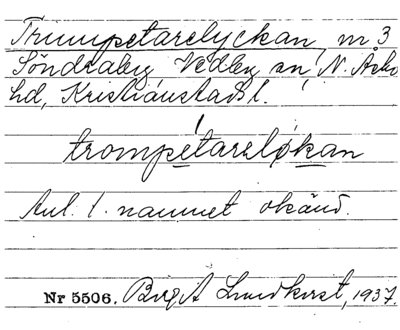 Trumpetarelyckan, nr 3
Söndraby Vedby sn, N. Åsbo
hd, Kristianstads l.
trompétarelø̱kan
Anl. t. namnet okänd.
Nr 5506. Birg A Lundkvist, 1937.